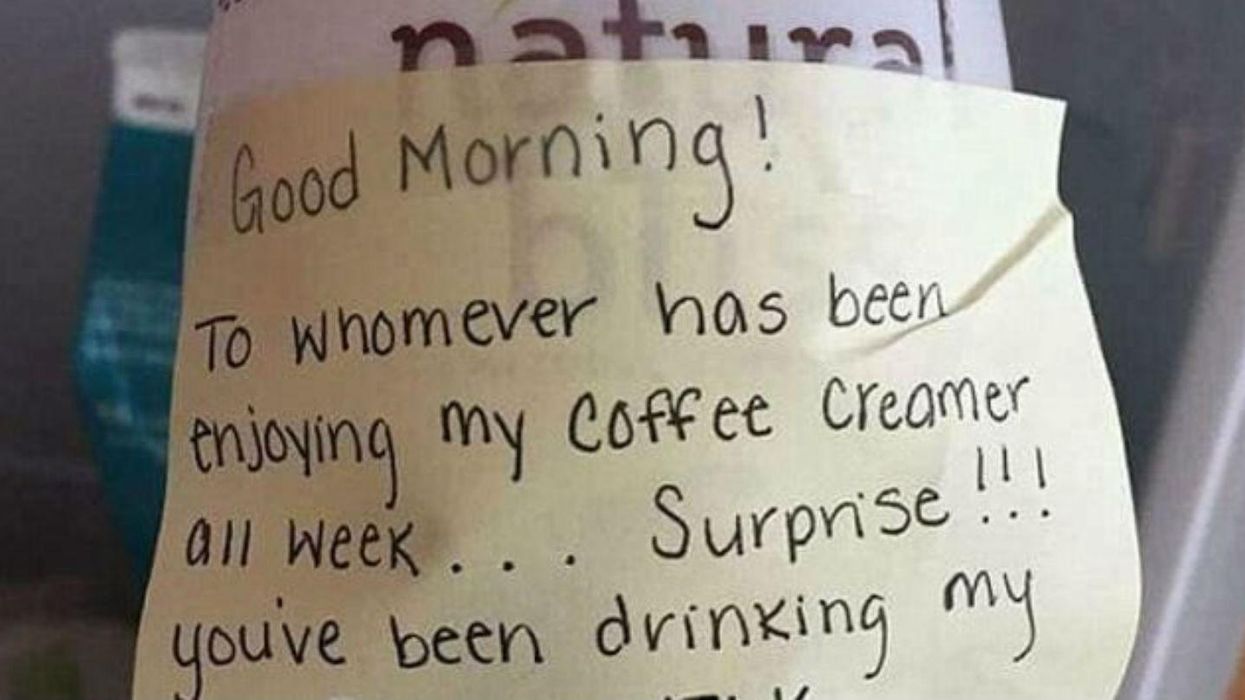 natural
Good Morning!
To whomever has been
enjoying my coffee creamer
all week... Surprise!!!
you've been drinking my